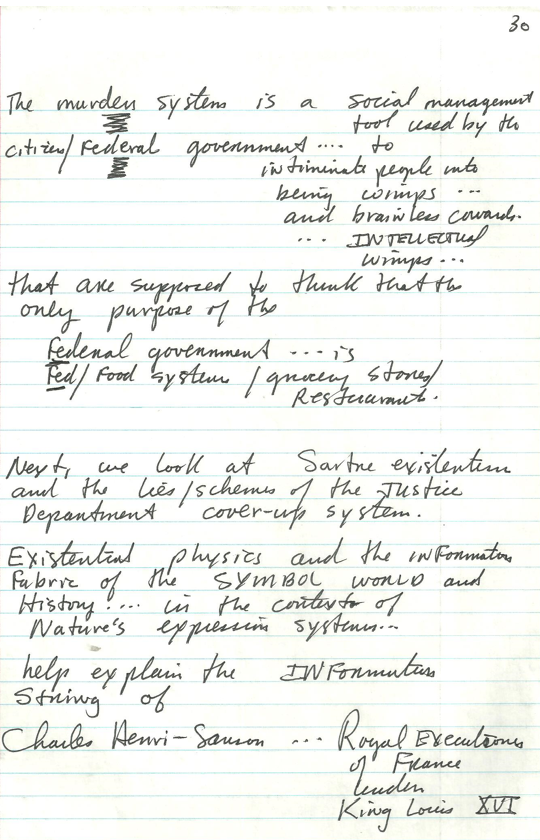 30
The murder system is a social management
tool used by the
citizen/Federal government .... to
intiminate people into
being wimps ...
and brainless cowards.
... INTELLECTUAL
wimps ...
that are supposed to think that the
only purpose of the
Federal government ... is
Fed/Food system / grocery stores/
Restaurants.
Next, we look at Sartre existentism
and the lies/schemes of the JUSTICE
Department cover-up system.
Existential physics and the INFormation
Fabric of the SYMBOL WORLD and
History .... in the context of
Nature's expression systems...
help explain the INFormation
String of
Charles Henri-Sanson ... Royal Executioner
of France
under
King Louis XVI